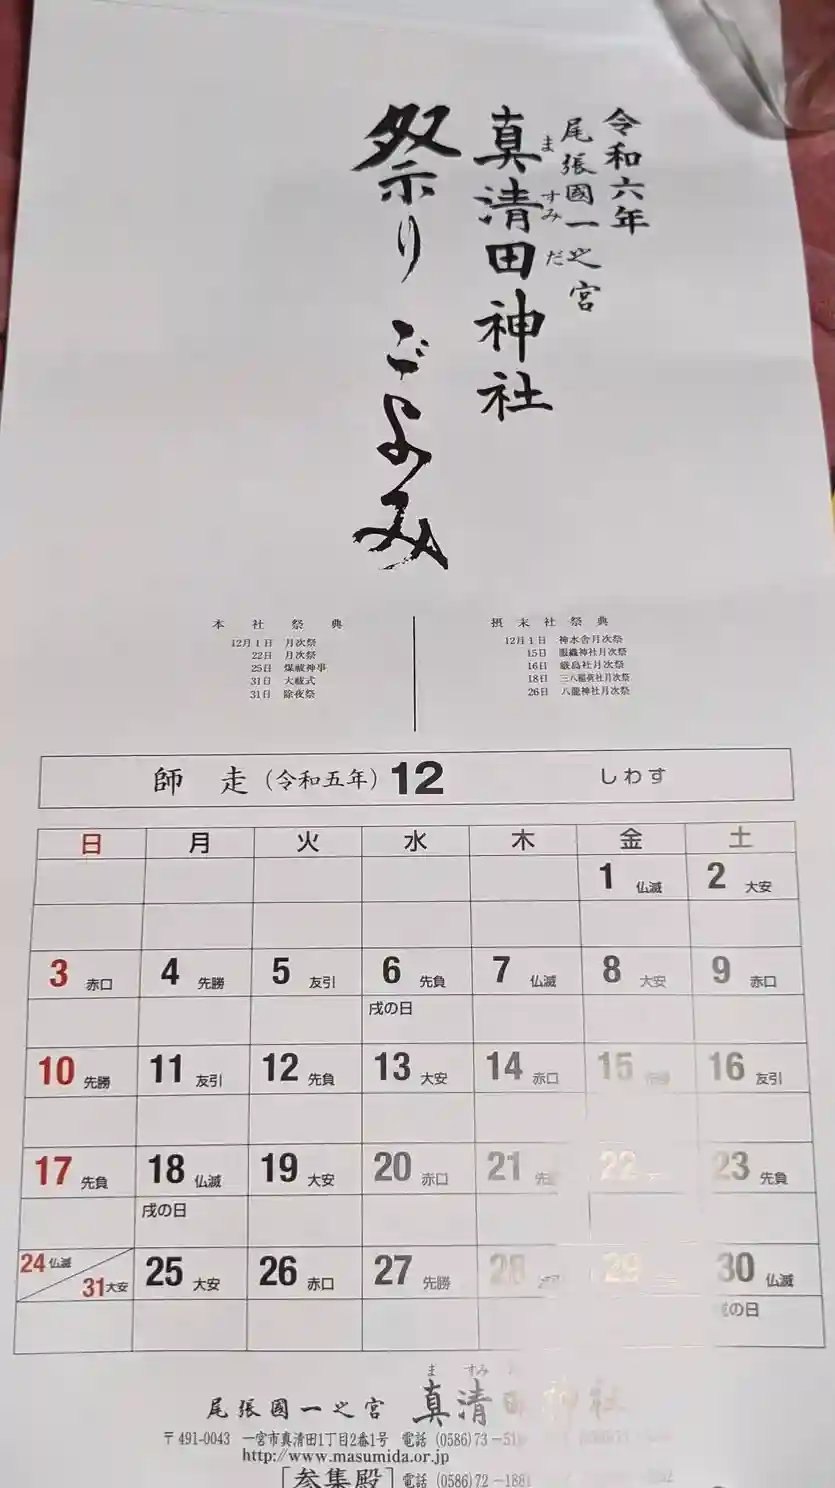 令和六年
尾張國一之宮
真清田神社
ますみだ
祭りごよみ
本社祭典
12月1日 月次祭
22日 月次祭
25日 煤祓神事
31日 大祓式
31日 除夜祭
摂末社祭典
12月1日 神水舎月次祭
15日 服織神社月次祭
16日 厳島社月次祭
18日 三八稲荷社月次祭
26日 八龍神社月次祭
師走(令和五年)12 しわす
日 月 火 水 木 金 土
1 仏滅 2 大安
3 赤口 4 先勝 5 友引 6 先負 7 仏滅 8 大安 9 赤口
戌の日
10 先勝 11 友引 12 先負 13 大安 14 赤口 15 16 友引
17 先負 18 仏滅 19 大安 20 赤口 21 22 23 先負
戌の日
24 仏滅 31 大安 25 大安 26 赤口 27 先勝 28 29 30 仏滅
の日
ま すみ
尾張國一之宮 真清田神社
〒491-0043 一宮市真清田1丁目2番1号 電話 (0586)73-51
http://www.masumida.or.jp
[参集殿] 電話 (0586)72-1881